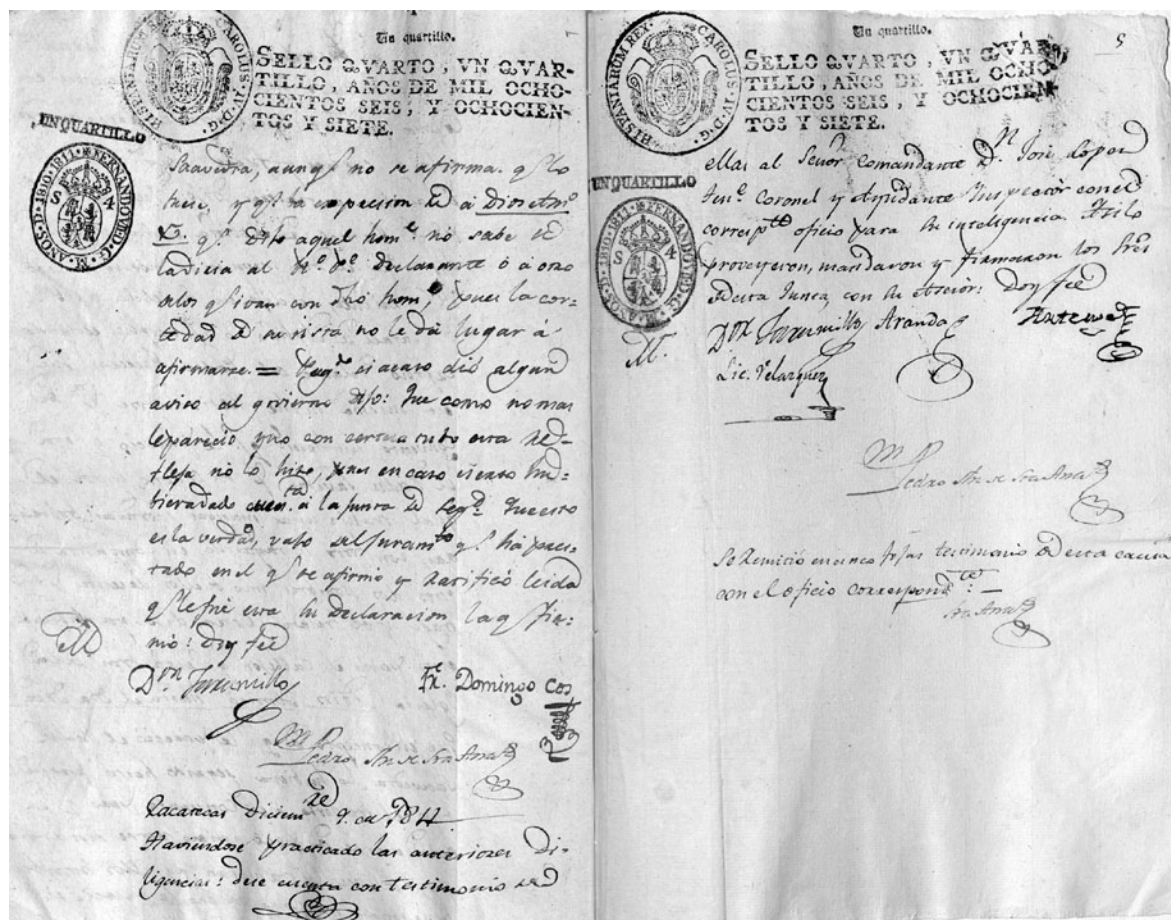 Un quartillo.
HISPANIARUM REX. CAROLUS. IV. D. G.
SELLO QVARTO, VN QVAR-
TILLO, AÑOS DE MIL OCHO-
CIENTOS SEIS, Y OCHOCIEN-
TOS Y SIETE.
UNQUARTILLO
FERNANDO VII D. G. AÑOS. D. 1810. 1811.
S 4
Saavedra, aunq.e no se afirma q.e lo
fuese, y q.e la exprecion de a Dios
q.e dijo aquel hom.e no sabe si
la diria al declarante ó á otro
de los q.e ivan con dho hom.e, pues la cor-
tedad de su vista no le dá lugar á
afirmarse. = Preg.do si acaso dió algun
aviso al govierno dijo: Que como no mas
le parecio y no con certeza tubo esta
no lo hizo, pues en caso cierto hu-
biera dado cuenta á la Junta de Seg.d Que esto
es la verdad, vajo del Juram.to q.e há pres-
tado en el q.e se afirmó y ratificó leida
q.e le fué esta su declaracion la q.e fir-
mó: Doy feé
D.or Jaramillo Fr. Domingo Cos
Pedro Sta Ana
Zacatecas Diciem.re 9. de 1811.
Haviendose practicado las anteriores Di-
ligencias: dese cuenta con testimonio de
Un quartillo.
5
HISPANIARUM REX. CAROLUS. IV. D. G.
SELLO QVARTO, VN QVAR-
TILLO, AÑOS DE MIL OCHO-
CIENTOS SEIS, Y OCHOCIEN-
TOS Y SIETE.
UNQUARTILLO
FERNANDO VII D. G. AÑOS. D. 1810. 1811.
S 4
ellas al Señor Comandante D.n José Lopez
Ten.e Coronel y Ayudante Inspector con el
corresp.te oficio para su inteligencia. Asi lo
proveyeron, mandaron y firmaron los Sres
de esta Junta, con su Asesor: Doy feé
D.or Jaramillo Aranda
Lic. Velazquez
Pedro Sta Ana
Se Remitió en cinco fojas testimonio de esta causa
con el oficio correspond.te
Sta Ana